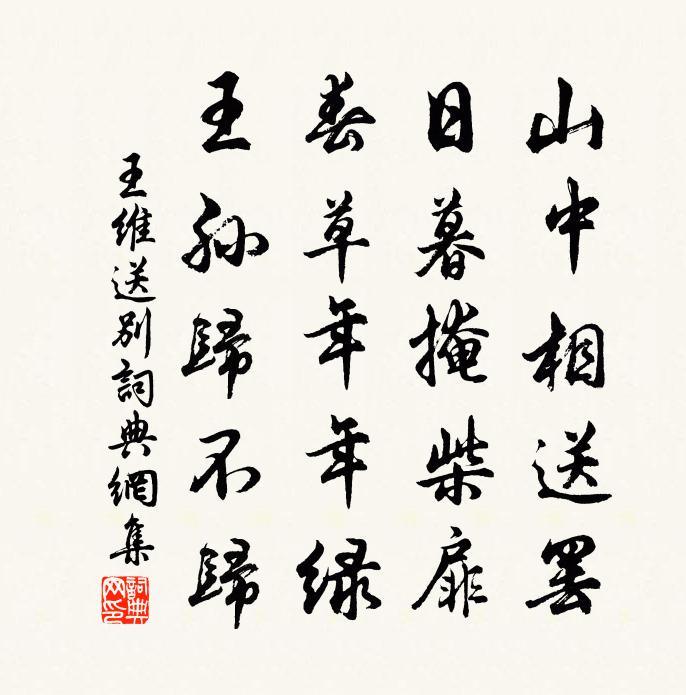 山中相送罷
日暮掩柴扉
春草年年绿
王孙歸不歸
王維送别詞典網集
詞典
网印